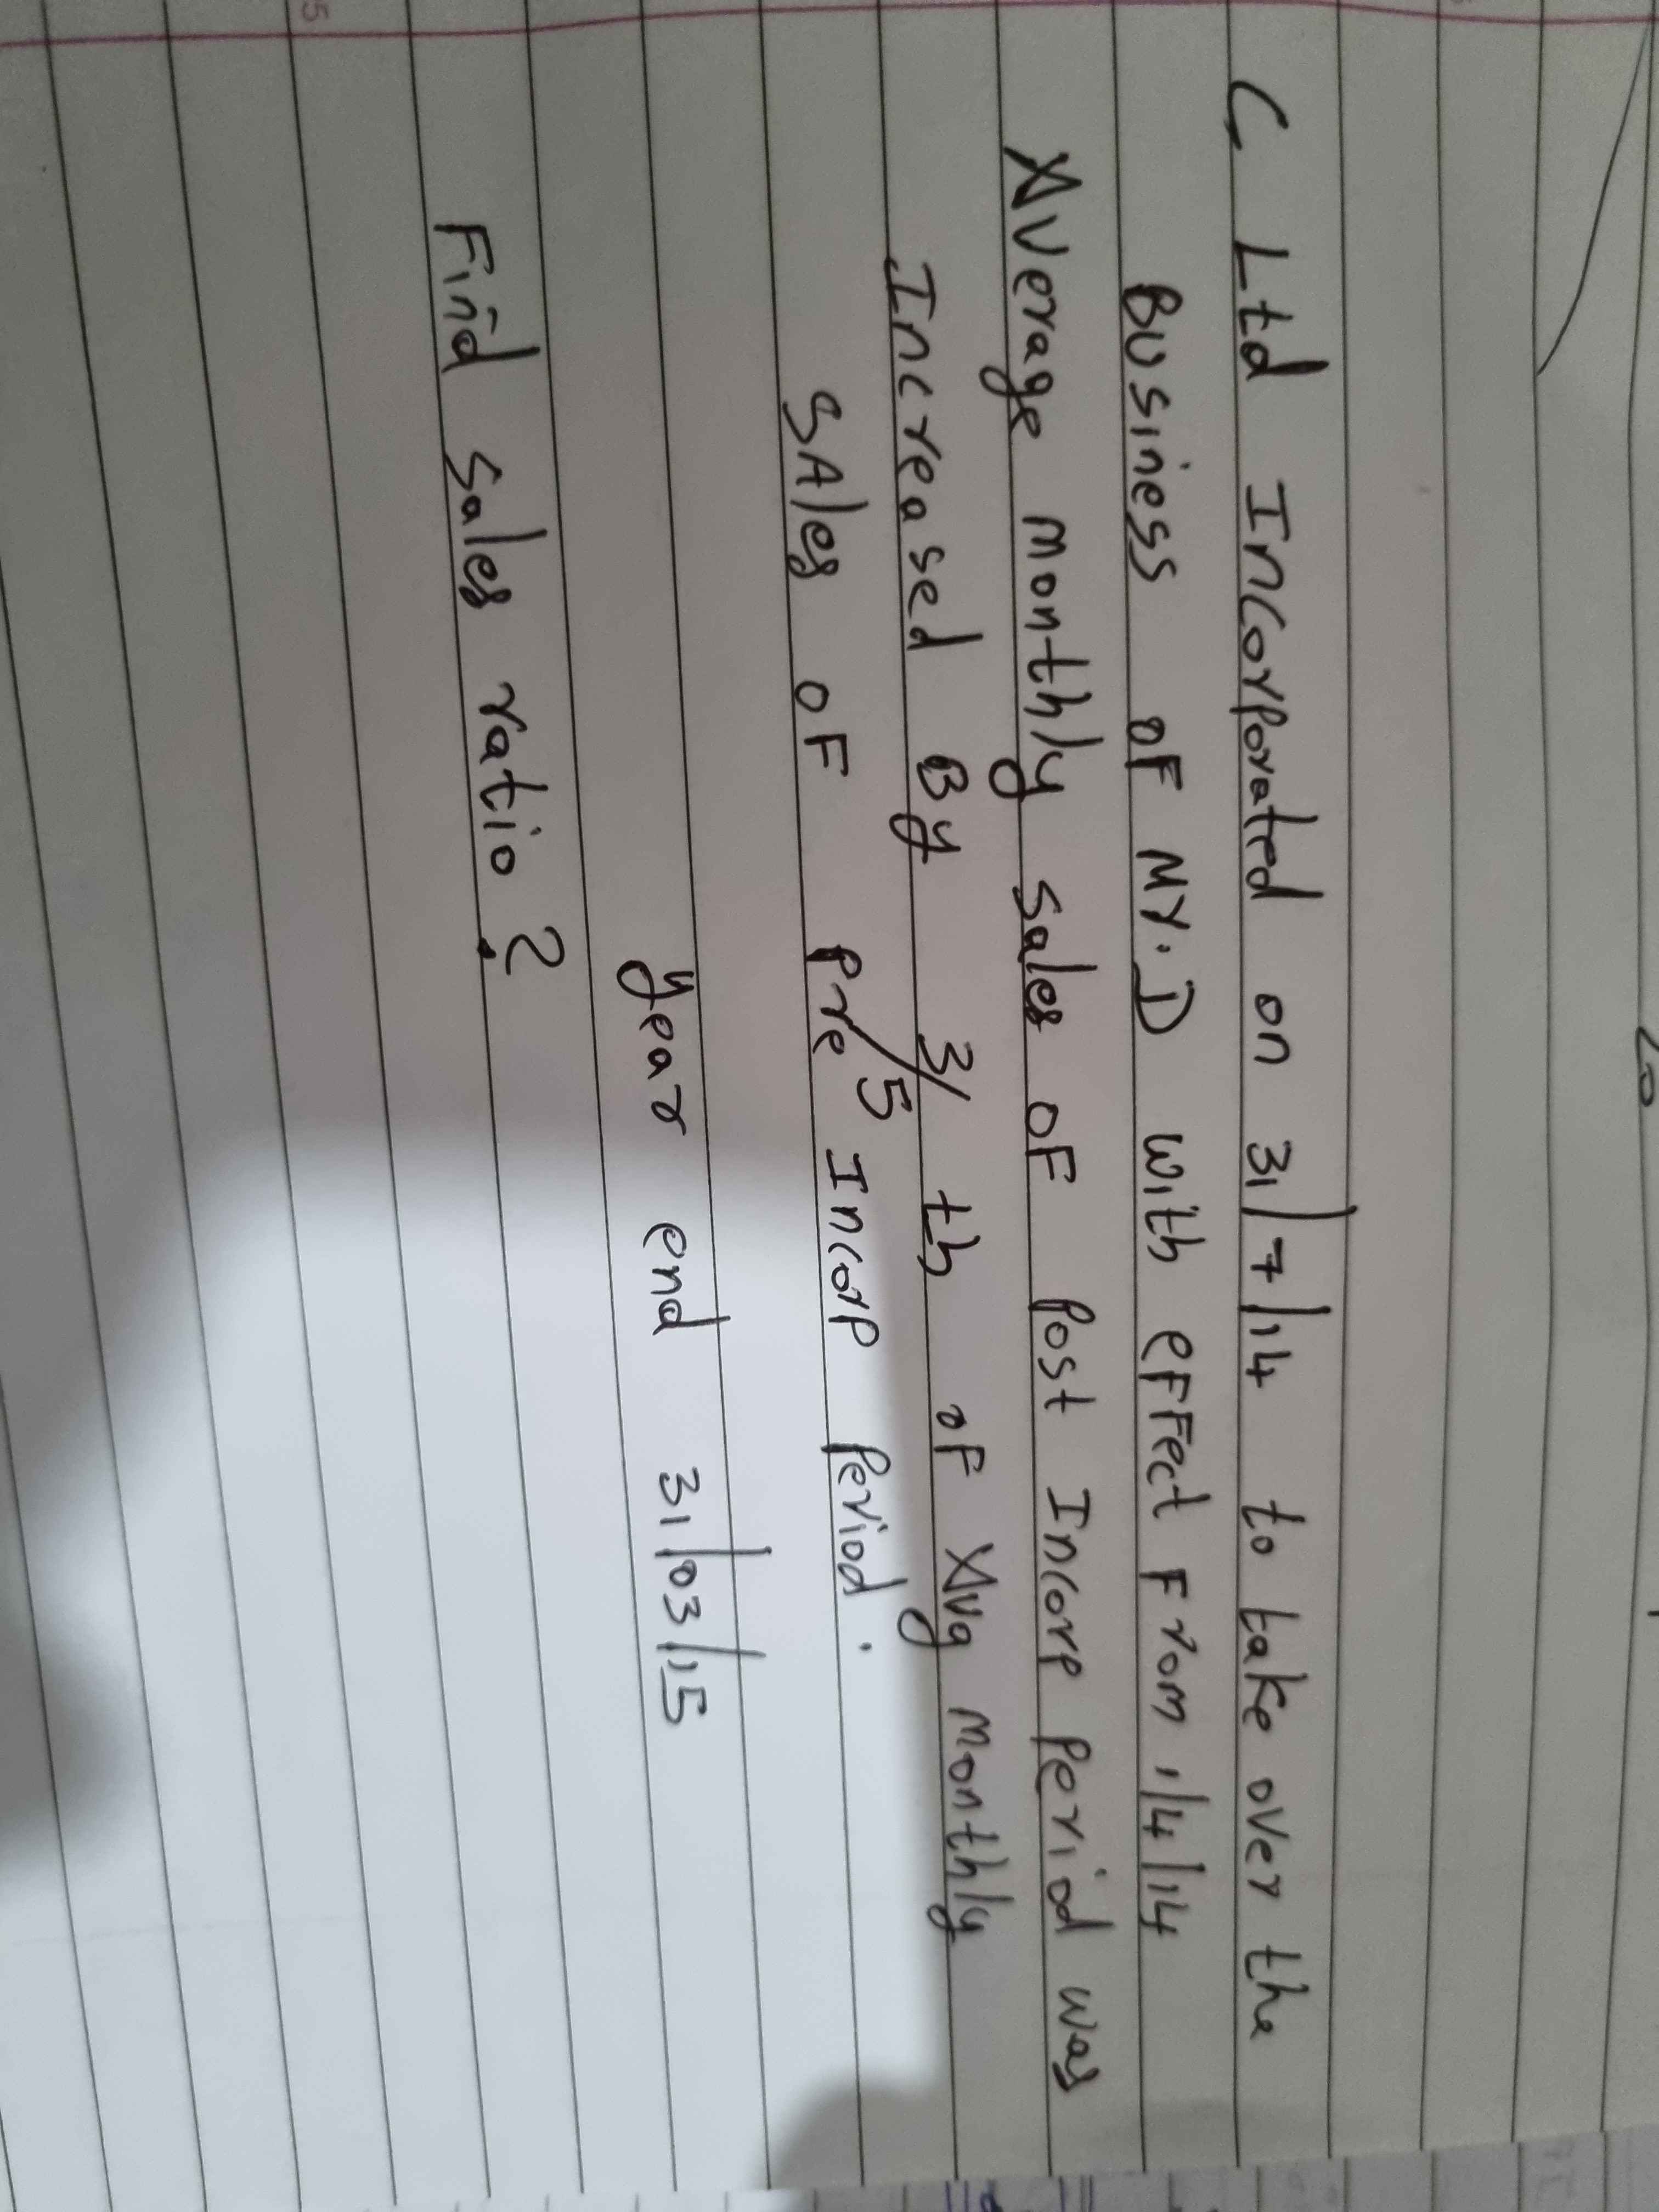 C Ltd Incorporated on 31/7/14 to take over the
Business of Mr. D with effect From 1/4/14
Average monthly sales of Post Incorp Period was
Increased By 3/5 th of Avg monthly
SAles of Pre Incorp Period.
year end 31/03/15
Find sales ratio?